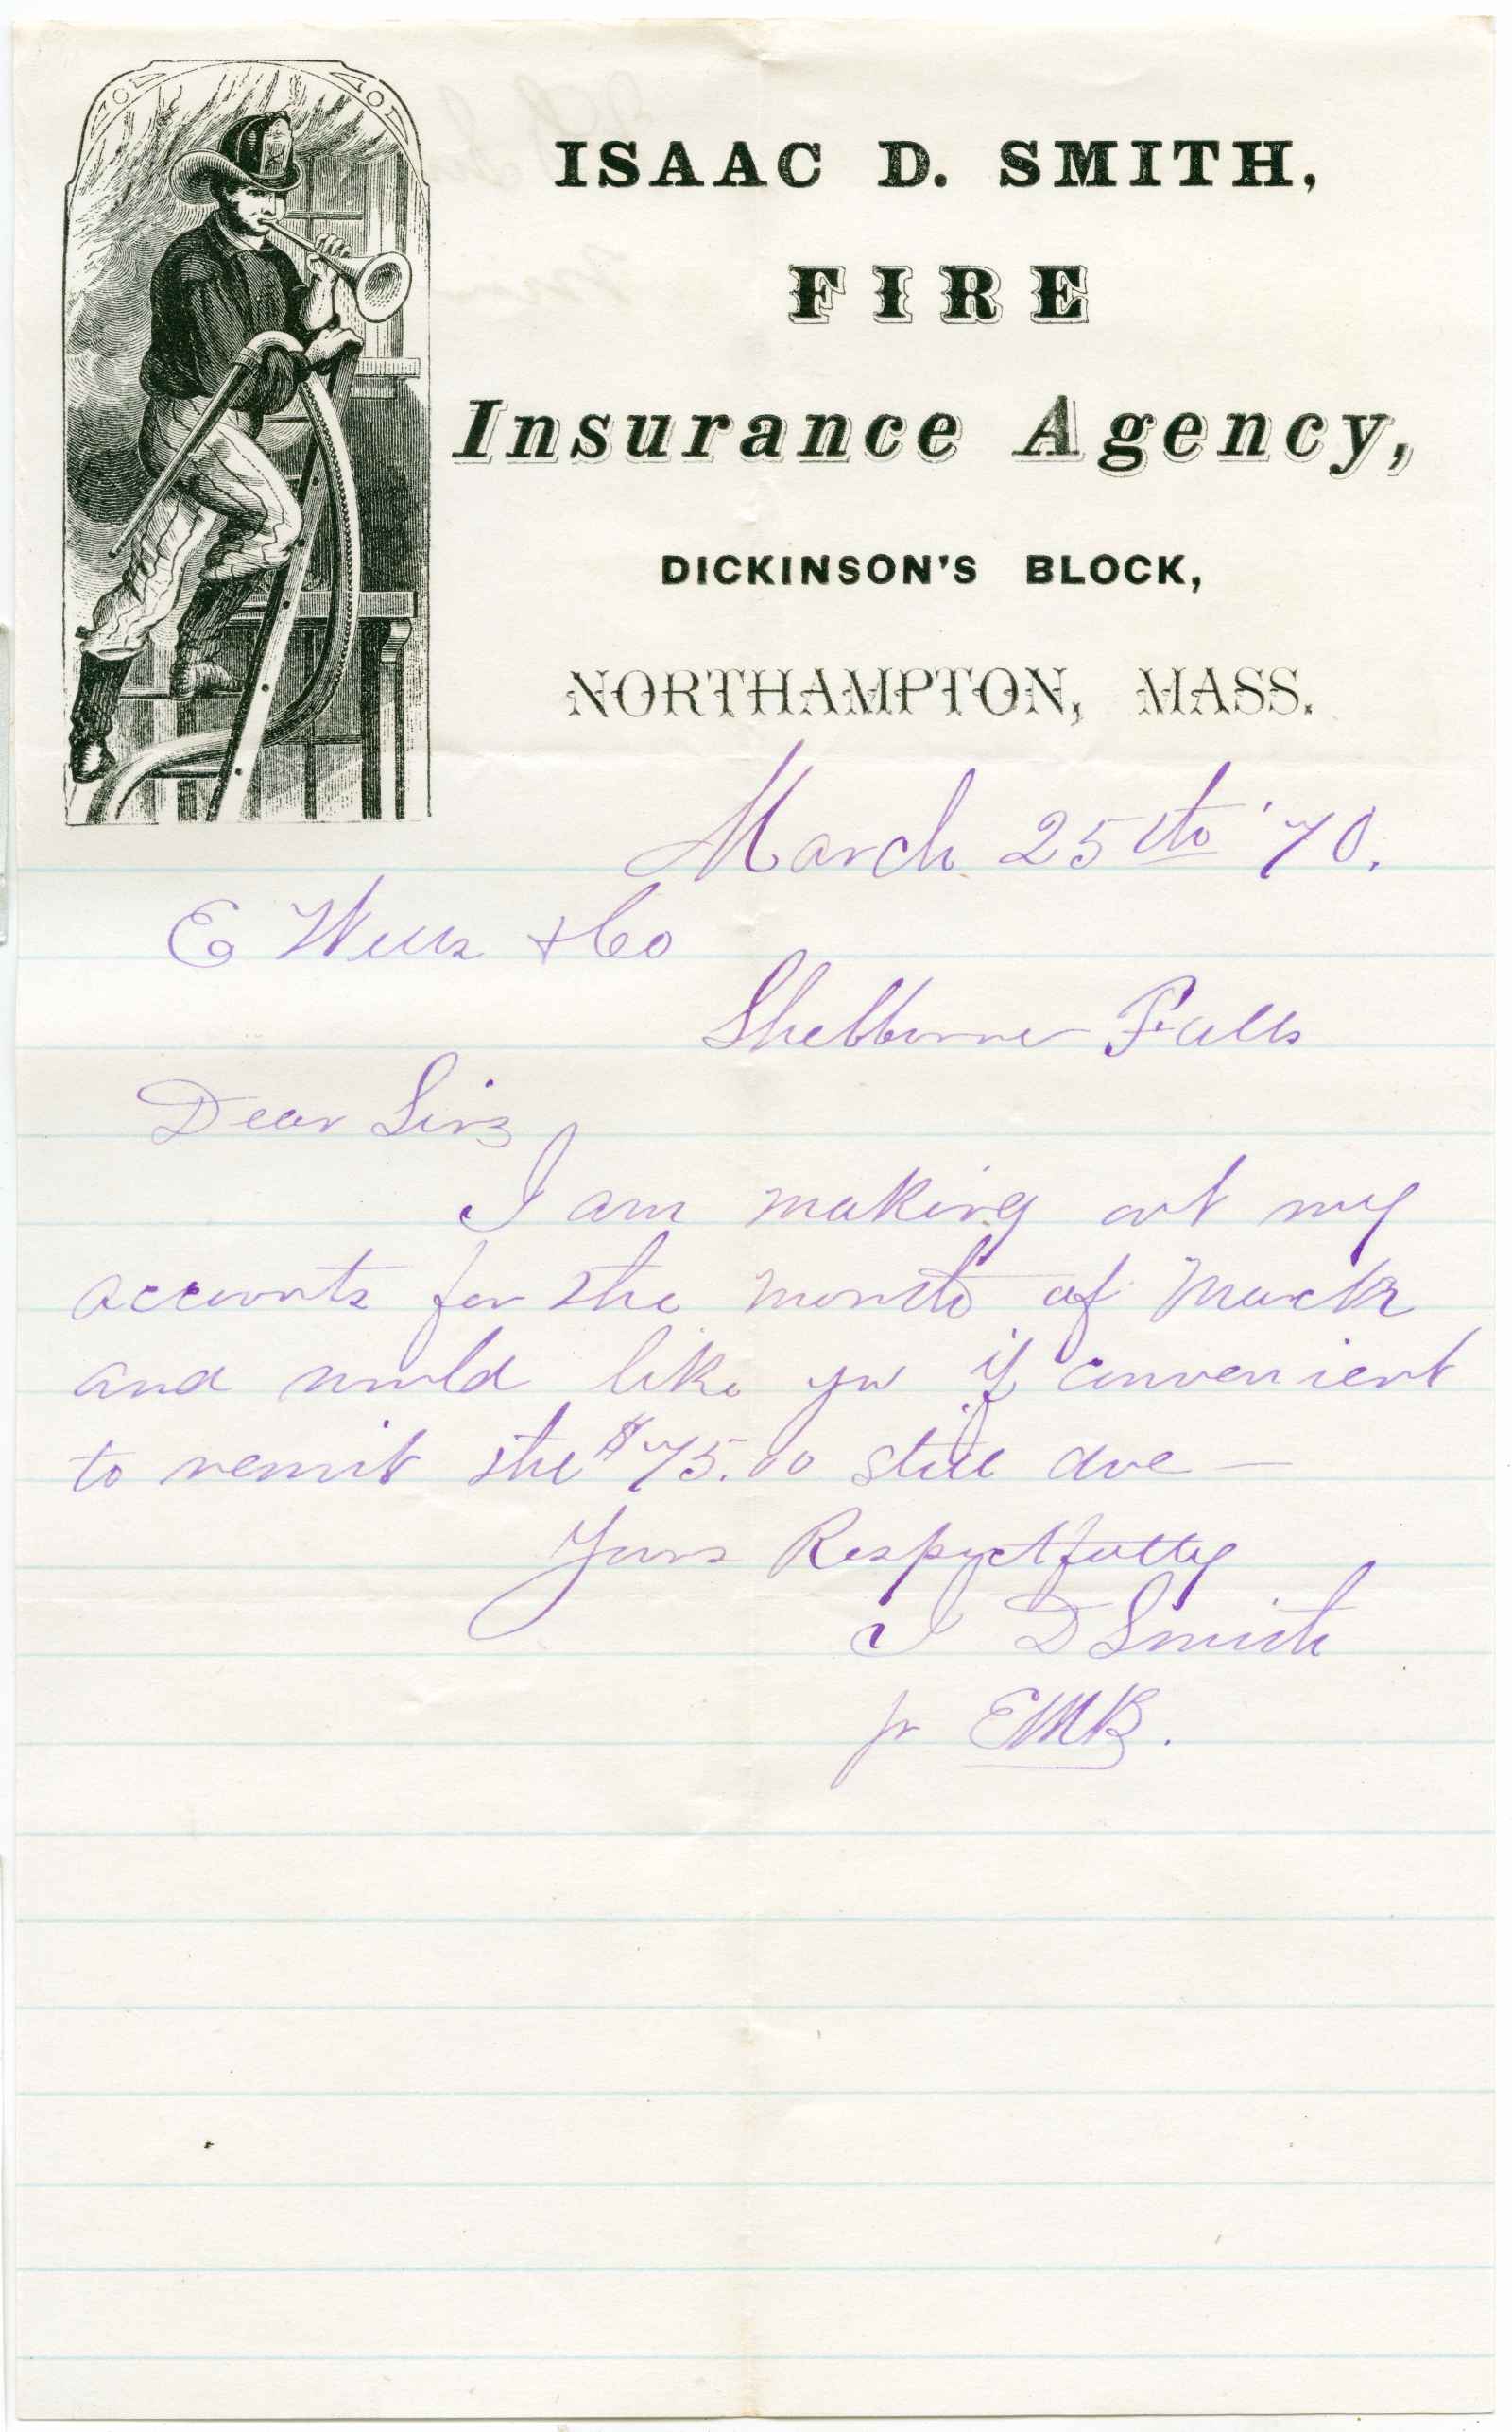 ISAAC D. SMITH,
FIRE
Insurance Agency,
DICKINSON'S BLOCK,
NORTHAMPTON, MASS.
March 25th '70.
E Wells & Co
Shelburne Falls
Dear Sirs
I am making out my
accounts for the month of March
and would like you if convenient
to remit the $75.00 still due —
Yours Respectfully
I D Smith
pr EMB.